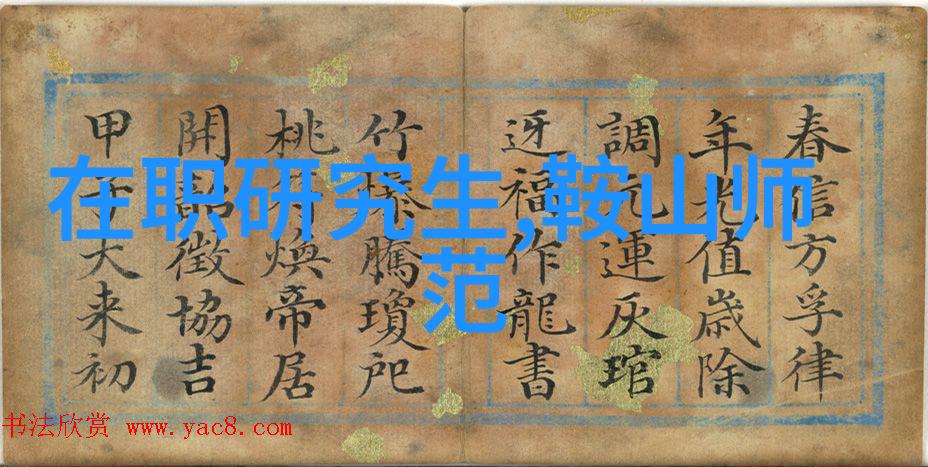 春信方孚律
年光值歲除
調元運灰琯
迓福作龍書
竹爆騰瓊戺
桃符煥帝居
開韶徵協吉
甲子大来初
在职研究生,鞍山师
范
书法欣赏 www.yac8.com